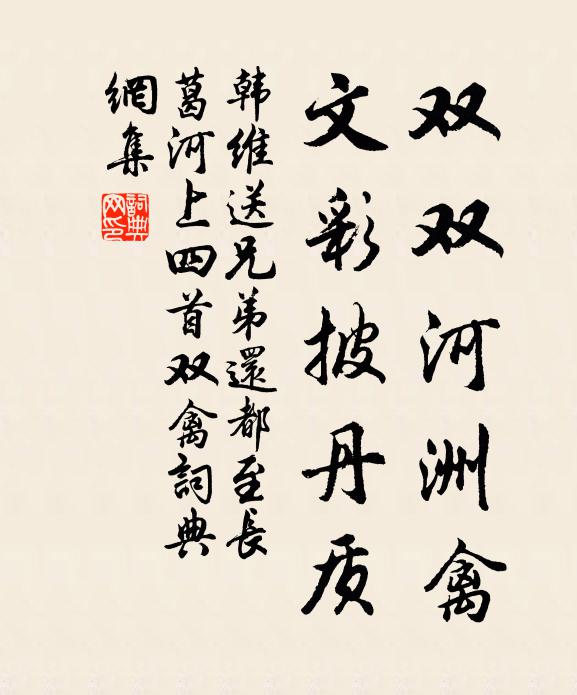 双双河洲禽
文彩披丹质
韩维送兄弟還都至長
葛河上四首双禽詞典
網集
詞典
网印